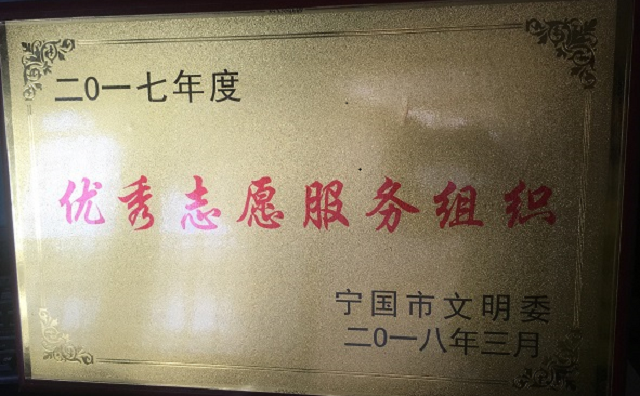 二0一七年度
优秀志愿服务组织
宁国市文明委
二0一八年三月